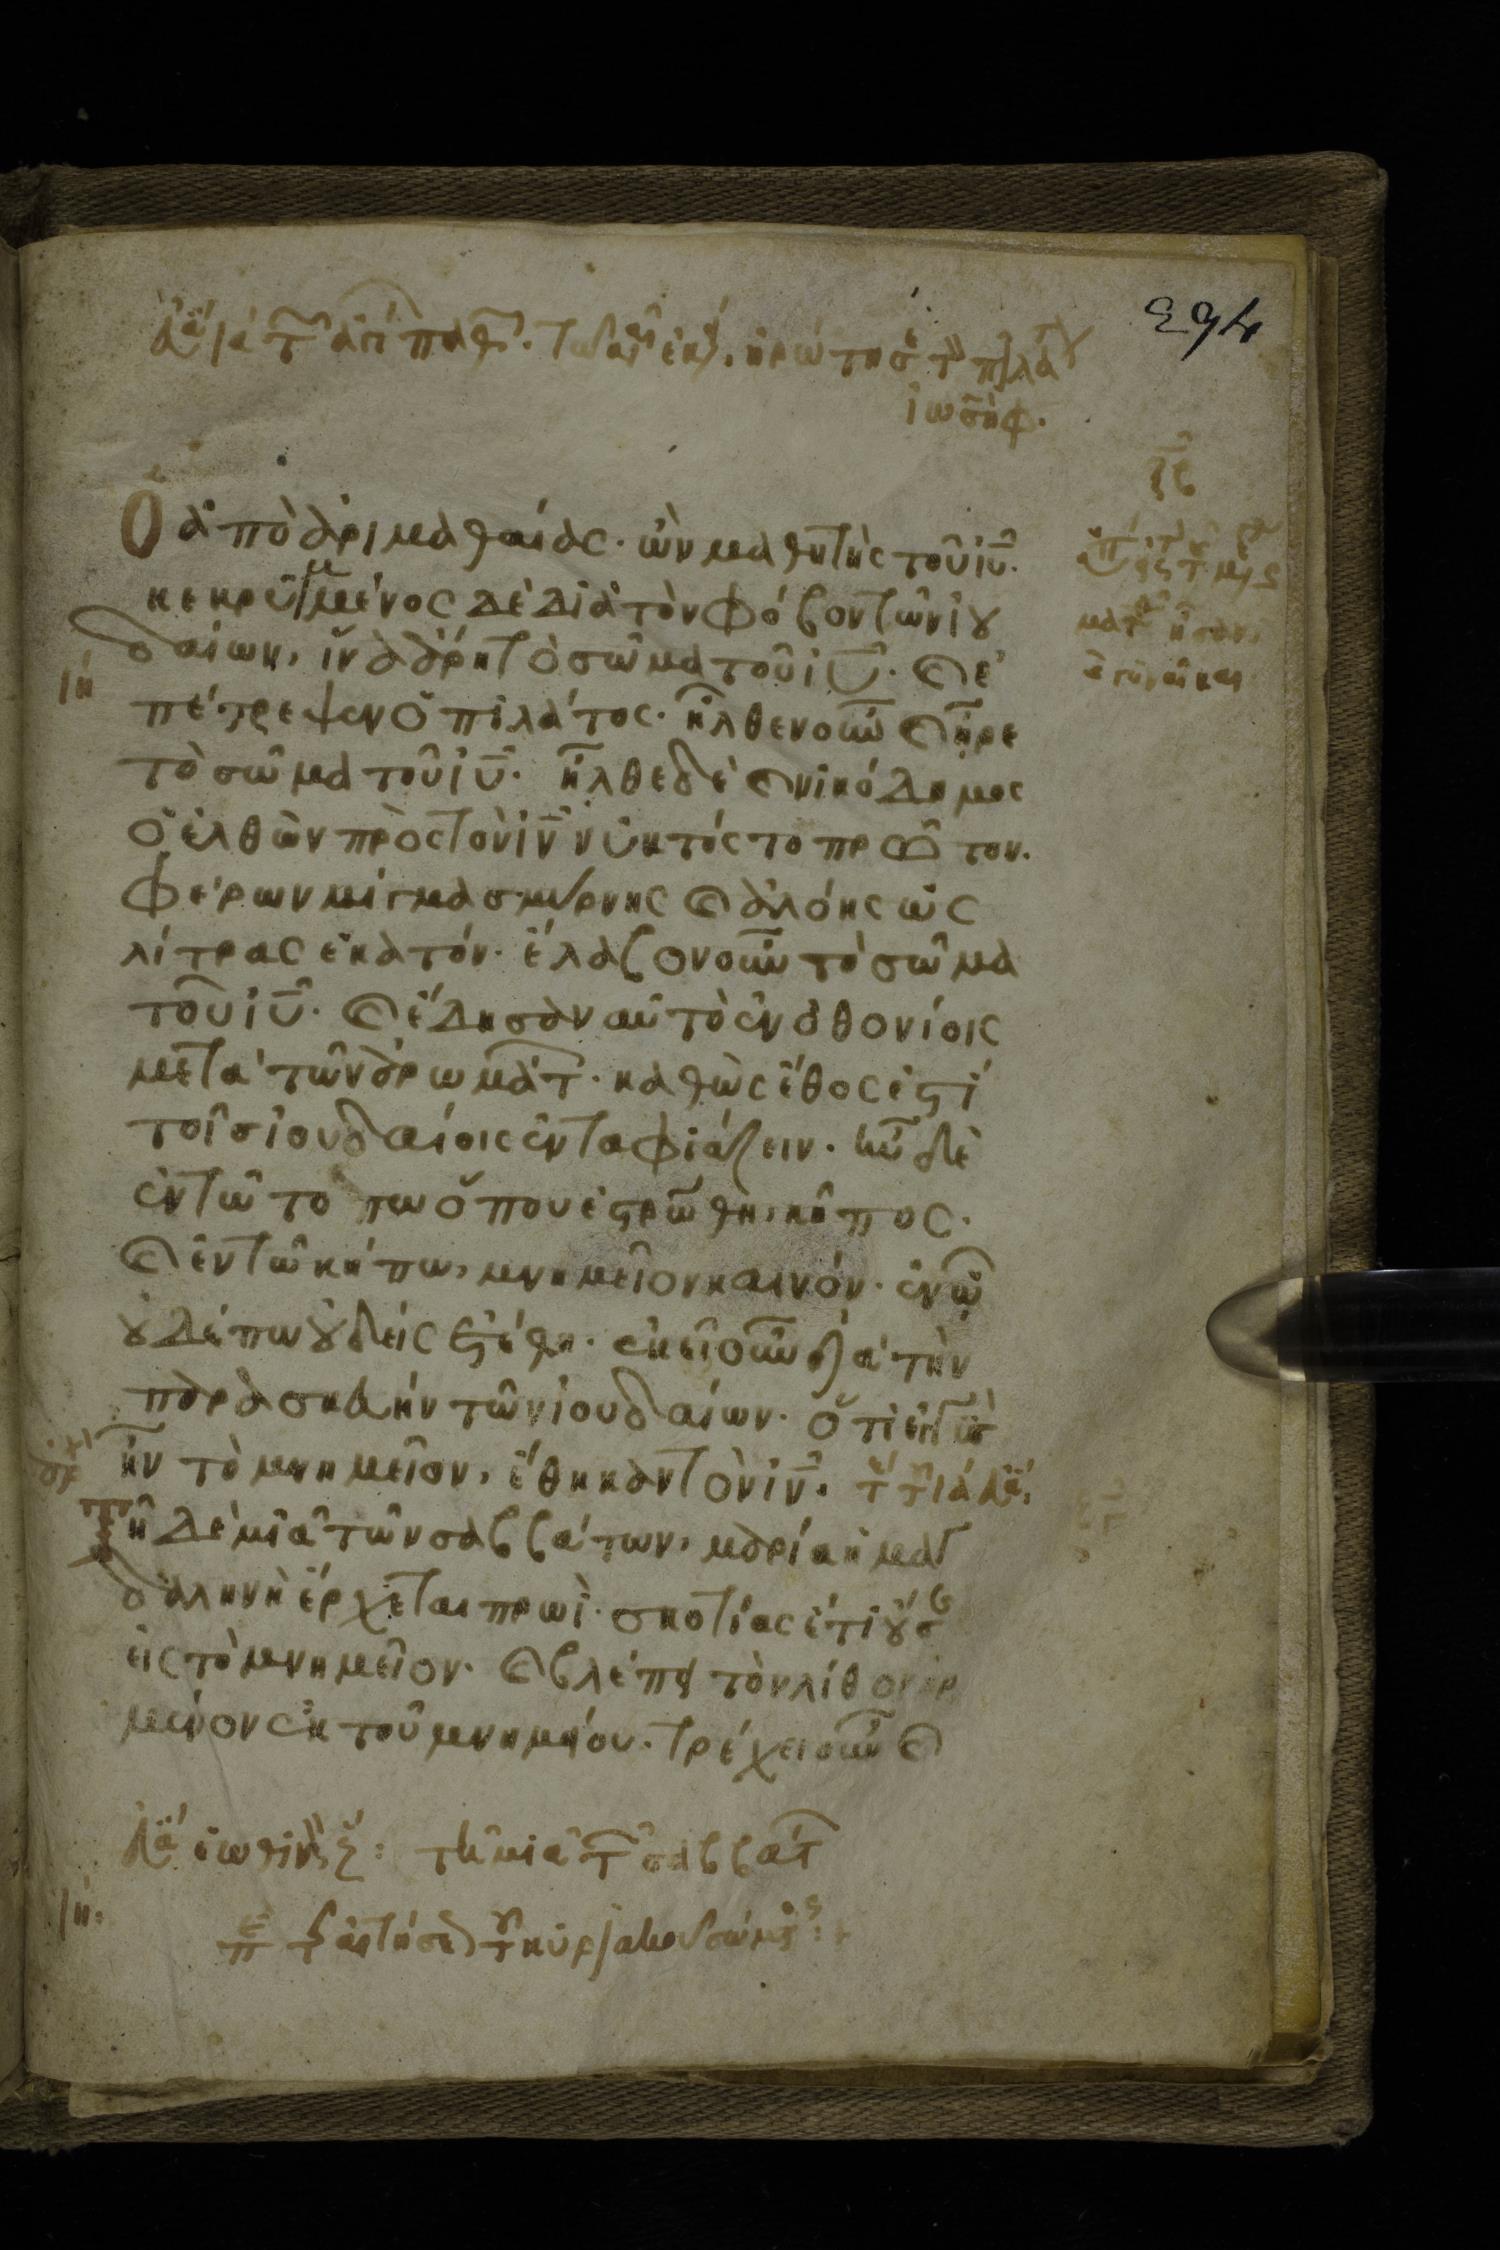 294
ἰωσὴφ.
Ὁ ἀπὸ ἀριμαθαίας· ὢν μαθητὴς τοῦ ἰυ̅·
κεκρυμμένος δὲ διὰ τὸν φόβον τῶν ἰου
δαίων, ἵνα ἄρη τὸ σῶμα τοῦ ἰυ̅· καὶ ἐ
πέτρεψεν ὁ πιλάτος· ἦλθεν οὖν καὶ ἦρε
τὸ σῶμα τοῦ ἰυ̅· ἦλθε δὲ καὶ νικόδημος
ὁ ἐλθὼν πρὸς τὸν ἰν̅ νυκτός το πρῶτον·
φέρων μίγμα σμύρνης καὶ ἀλόης ὡς
λίτρας ἑκατόν· ἔλαβον οὖν τὸ σῶμα
τοῦ ἰυ̅· καὶ ἔδησαν αὐτὸ ἐν ὀθονίοις
μετὰ τῶν ἀρωμάτ· καθὼς ἔθος ἐστί
τοῖς ἰουδαίοις ἐνταφιάζειν· ἦν δὲ
ἐν τῶ τόπω ὅπου ἐστρώθη, κῆπος·
καὶ ἐν τῶ κήπω, μνημεῖον καινόν· ἐν ὧ
οὐδέπω οὐδεὶς ἐτέθη· ἐκεῖ οὖν διὰ τὴν
παρασκευὴν τῶν ἰουδαίων· ὅτι ἐγγὺς
ἦν τὸ μνημεῖον, ἔθηκαν τὸν ἰν̅·
τῆ δὲ μιᾶ τῶν σαββάτων, μαρία ἡ μαγ
δαληνὴ ἔρχεται πρωῒ· σκοτίας ἔτι οὔσ
εἰς τὸ μνημεῖον· καὶ βλέπει τὸν λίθον ἠρ
μένον ἐκ τοῦ μνημείου· τρέχει οὖν καὶ
τῆ μιᾶ τ σαββάτ